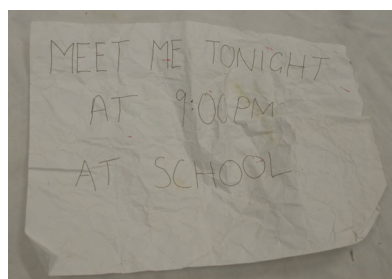 MEET ME TONIGHT
AT 9:00PM
AT SCHOOL